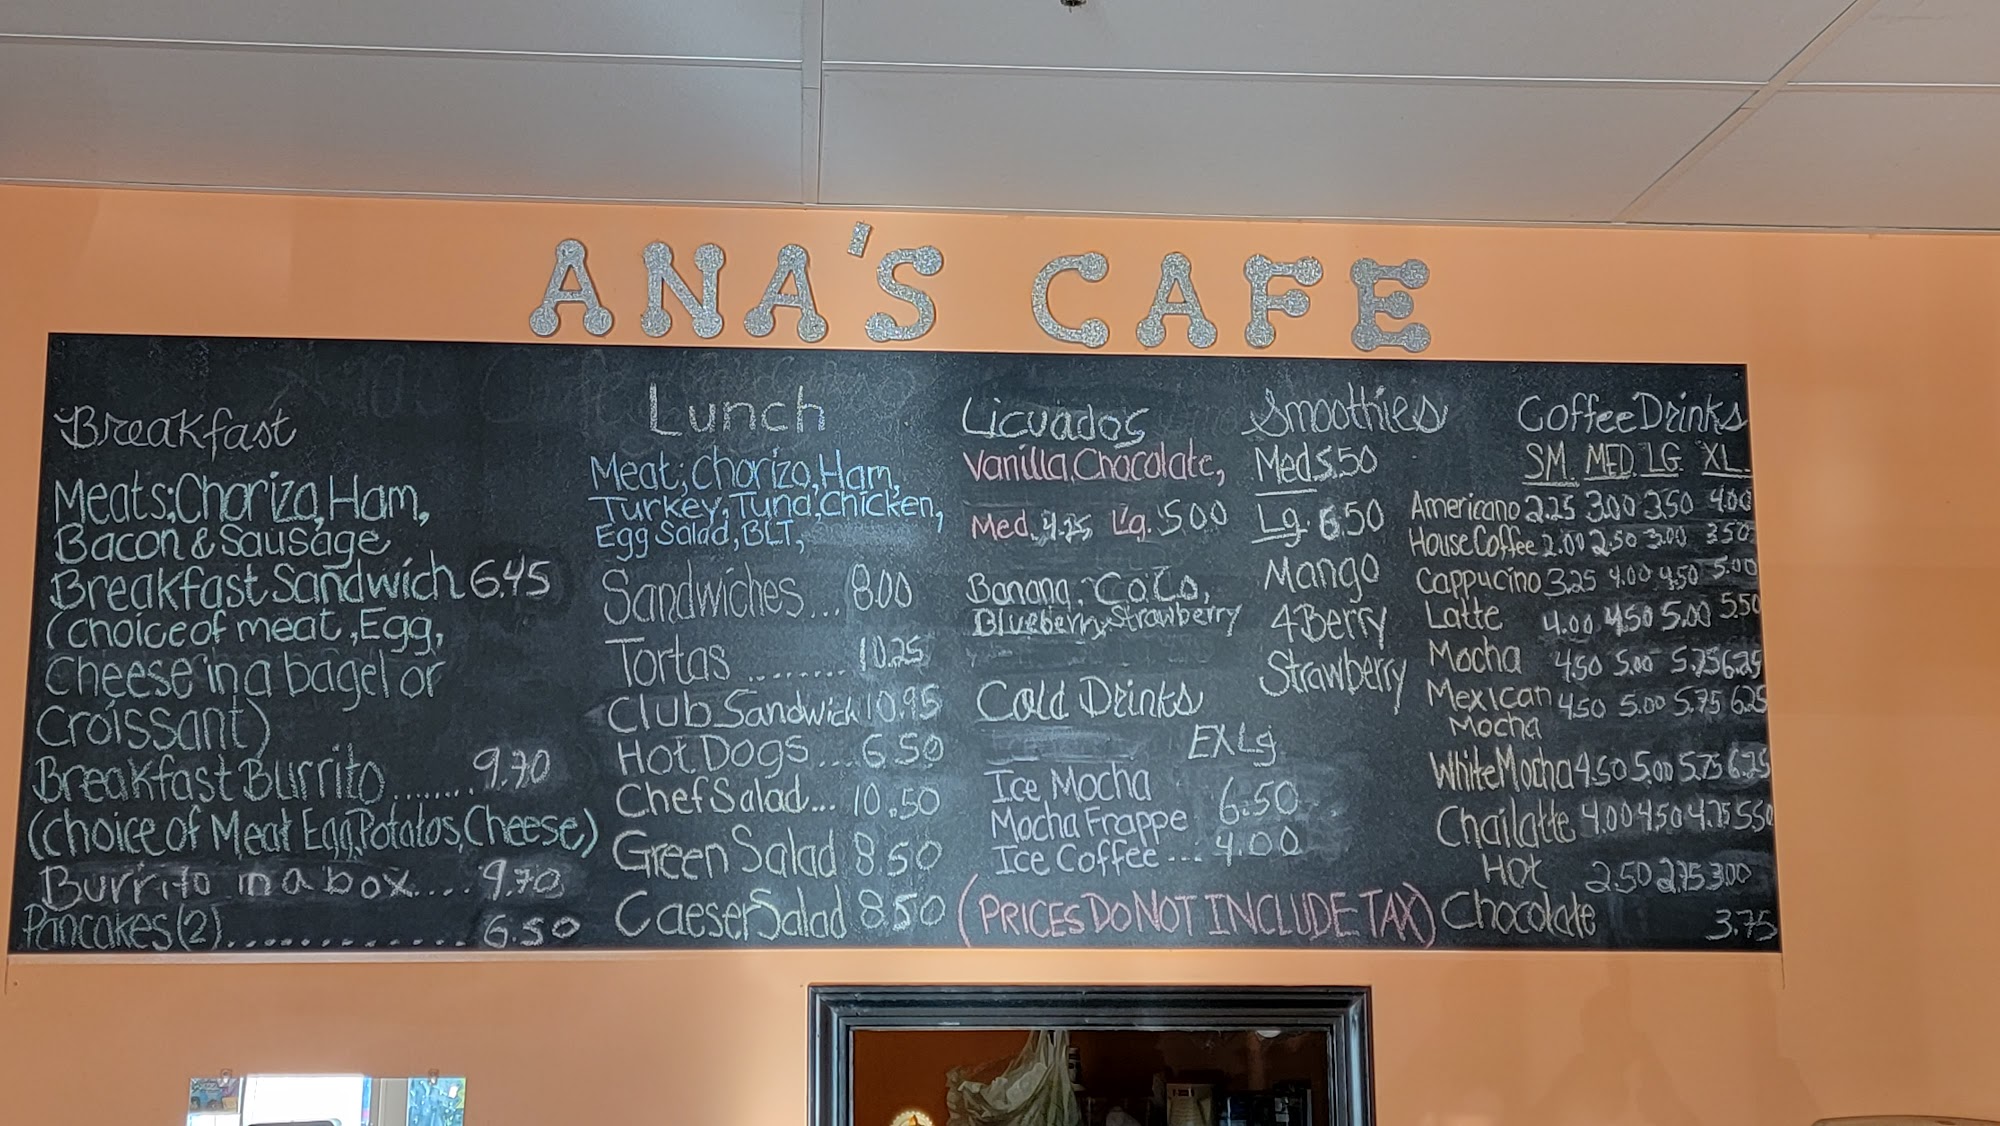 ANA'S CAFE
Breakfast
Meats; Chorizo, Ham,
Bacon & Sausage
Breakfast Sandwich 6.45
(choice of meat, Egg,
Cheese in a bagel or
Croissant)
Breakfast Burrito ........ 9.70
(choice of Meat Egg, Potatos, Cheese)
Burrito in a box.... 9.70
Pancakes (2)............. 6.50
Lunch
Meat; Chorizo, Ham,
Turkey, Tuna, Chicken,
Egg Salad, BLT,
Sandwiches... 8.00
Tortas ......... 10.25
Club Sandwich 10.95
Hot Dogs.... 6.50
Chef Salad... 10.50
Green Salad 8.50
Caeser Salad 8.50
Licuados
Vanilla, Chocolate,
Med. 4.25 Lg. 5.00
Banana, CoCo,
Blueberry, Strawberry
Cold Drinks
EX Lg
Ice Mocha
Mocha Frappe 6.50
Ice Coffee .... 4.00
(PRICES DO NOT INCLUDE TAX)
Smoothies
Med 5.50
Lg. 6.50
Mango
4 Berry
Strawberry
Coffee Drinks
SM. MED. LG. XL.
Americano 2.25 3.00 3.50 4.00
House Coffee 2.00 2.50 3.00 3.50
Cappucino 3.25 4.00 4.50 5.00
Latte 4.00 4.50 5.00 5.50
Mocha 4.50 5.00 5.75 6.25
Mexican 4.50 5.00 5.75 6.25
Mocha
White Mocha 4.50 5.00 5.75 6.25
Chai latte 4.00 4.50 4.75 5.50
Hot 2.50 2.75 3.00
Chocolate 3.75